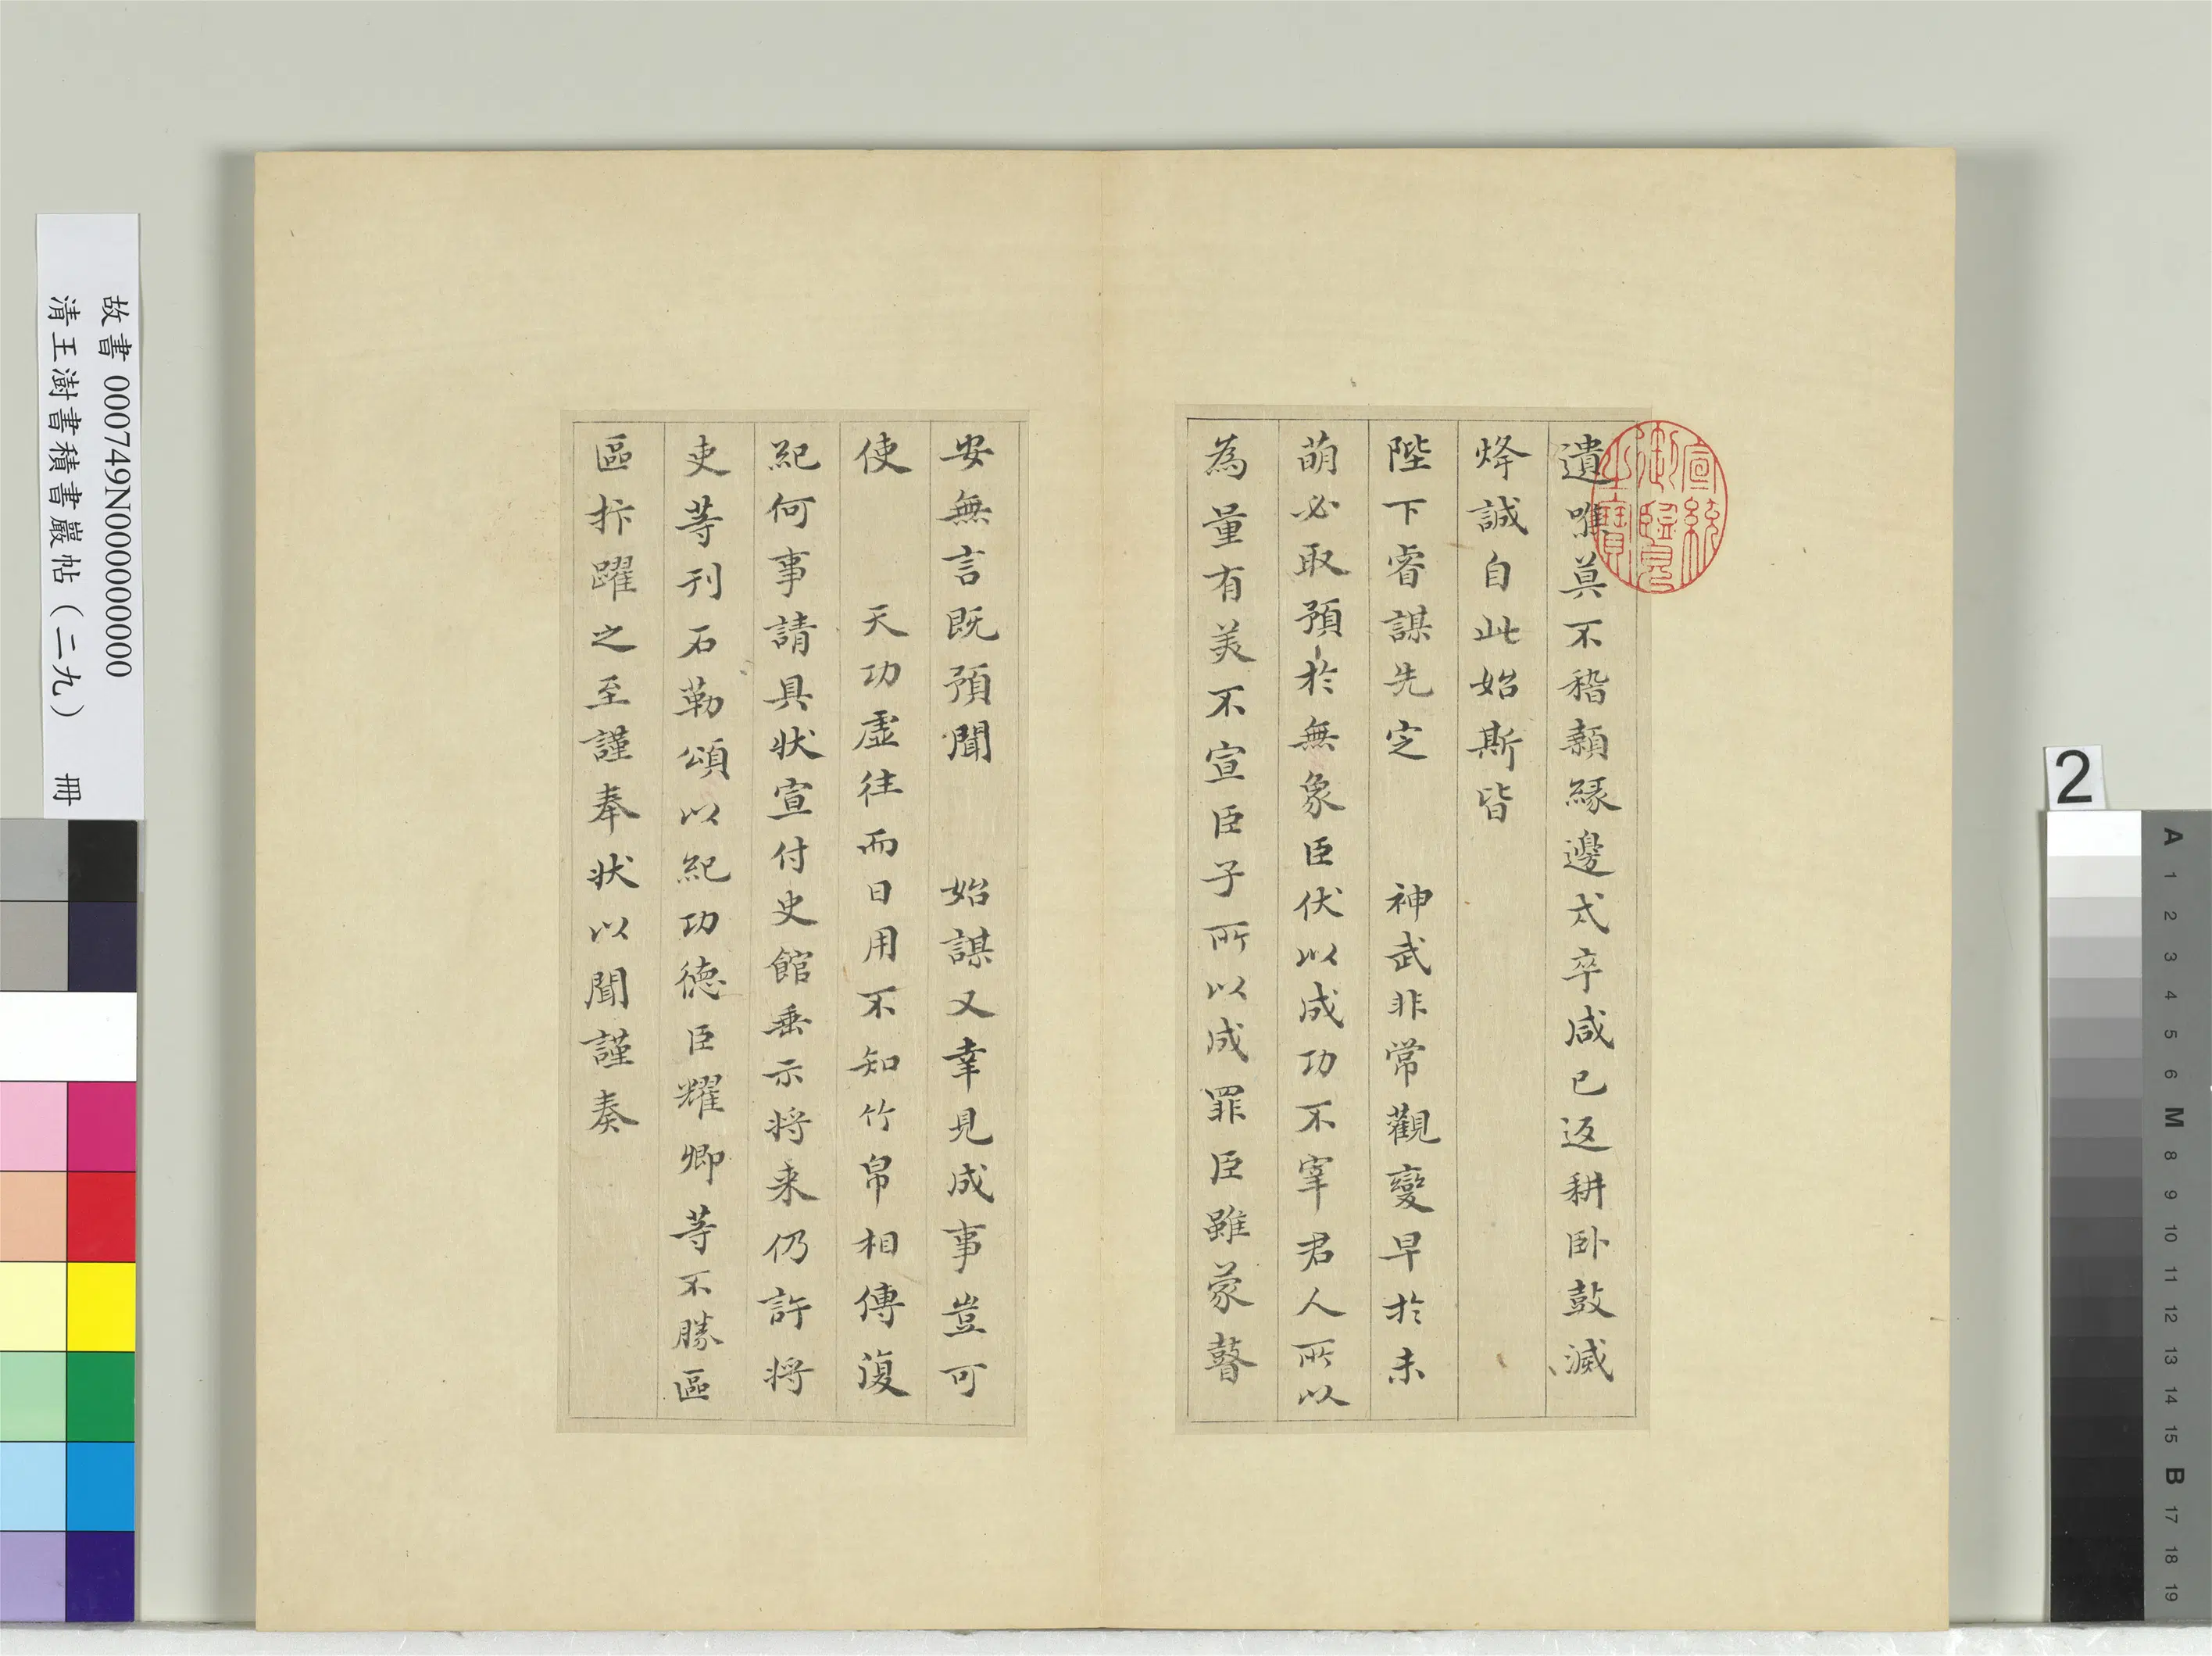 遺噍莫不稽顙緣邊戎卒咸已返耕卧鼓滅
烽誠自此始斯皆
陛下睿謀先定 神武非常觀變早於未
萌必取預於無象臣伏以成功不宰君人所以
為量有美不宣臣子所以成罪臣雖蒙瞽
安無言既預聞 始謀又幸見成事豈可
使 天功虛往而日用不知竹帛相傳復
紀何事請具狀宣付史館垂示将来仍許将
吏等刊石勒頌以紀功德臣耀卿等不勝區
區抃躍之至謹奉状以聞謹奏
宣統御覽之寶
故書 000749N000000000
清王澍書積書巖帖（二九） 冊
2
A 1 2 3 4 5 6 M 8 9 10 11 12 13 14 15 B 17 18 19